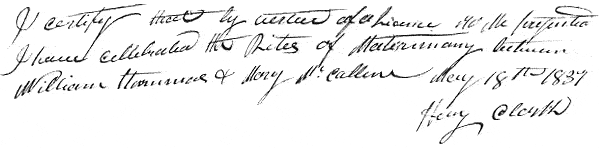 I certify that by virtue of a license to Me
I have celebrated the Rites of Matrimony between
William & Mary McCallum May 18th 1837
Henry